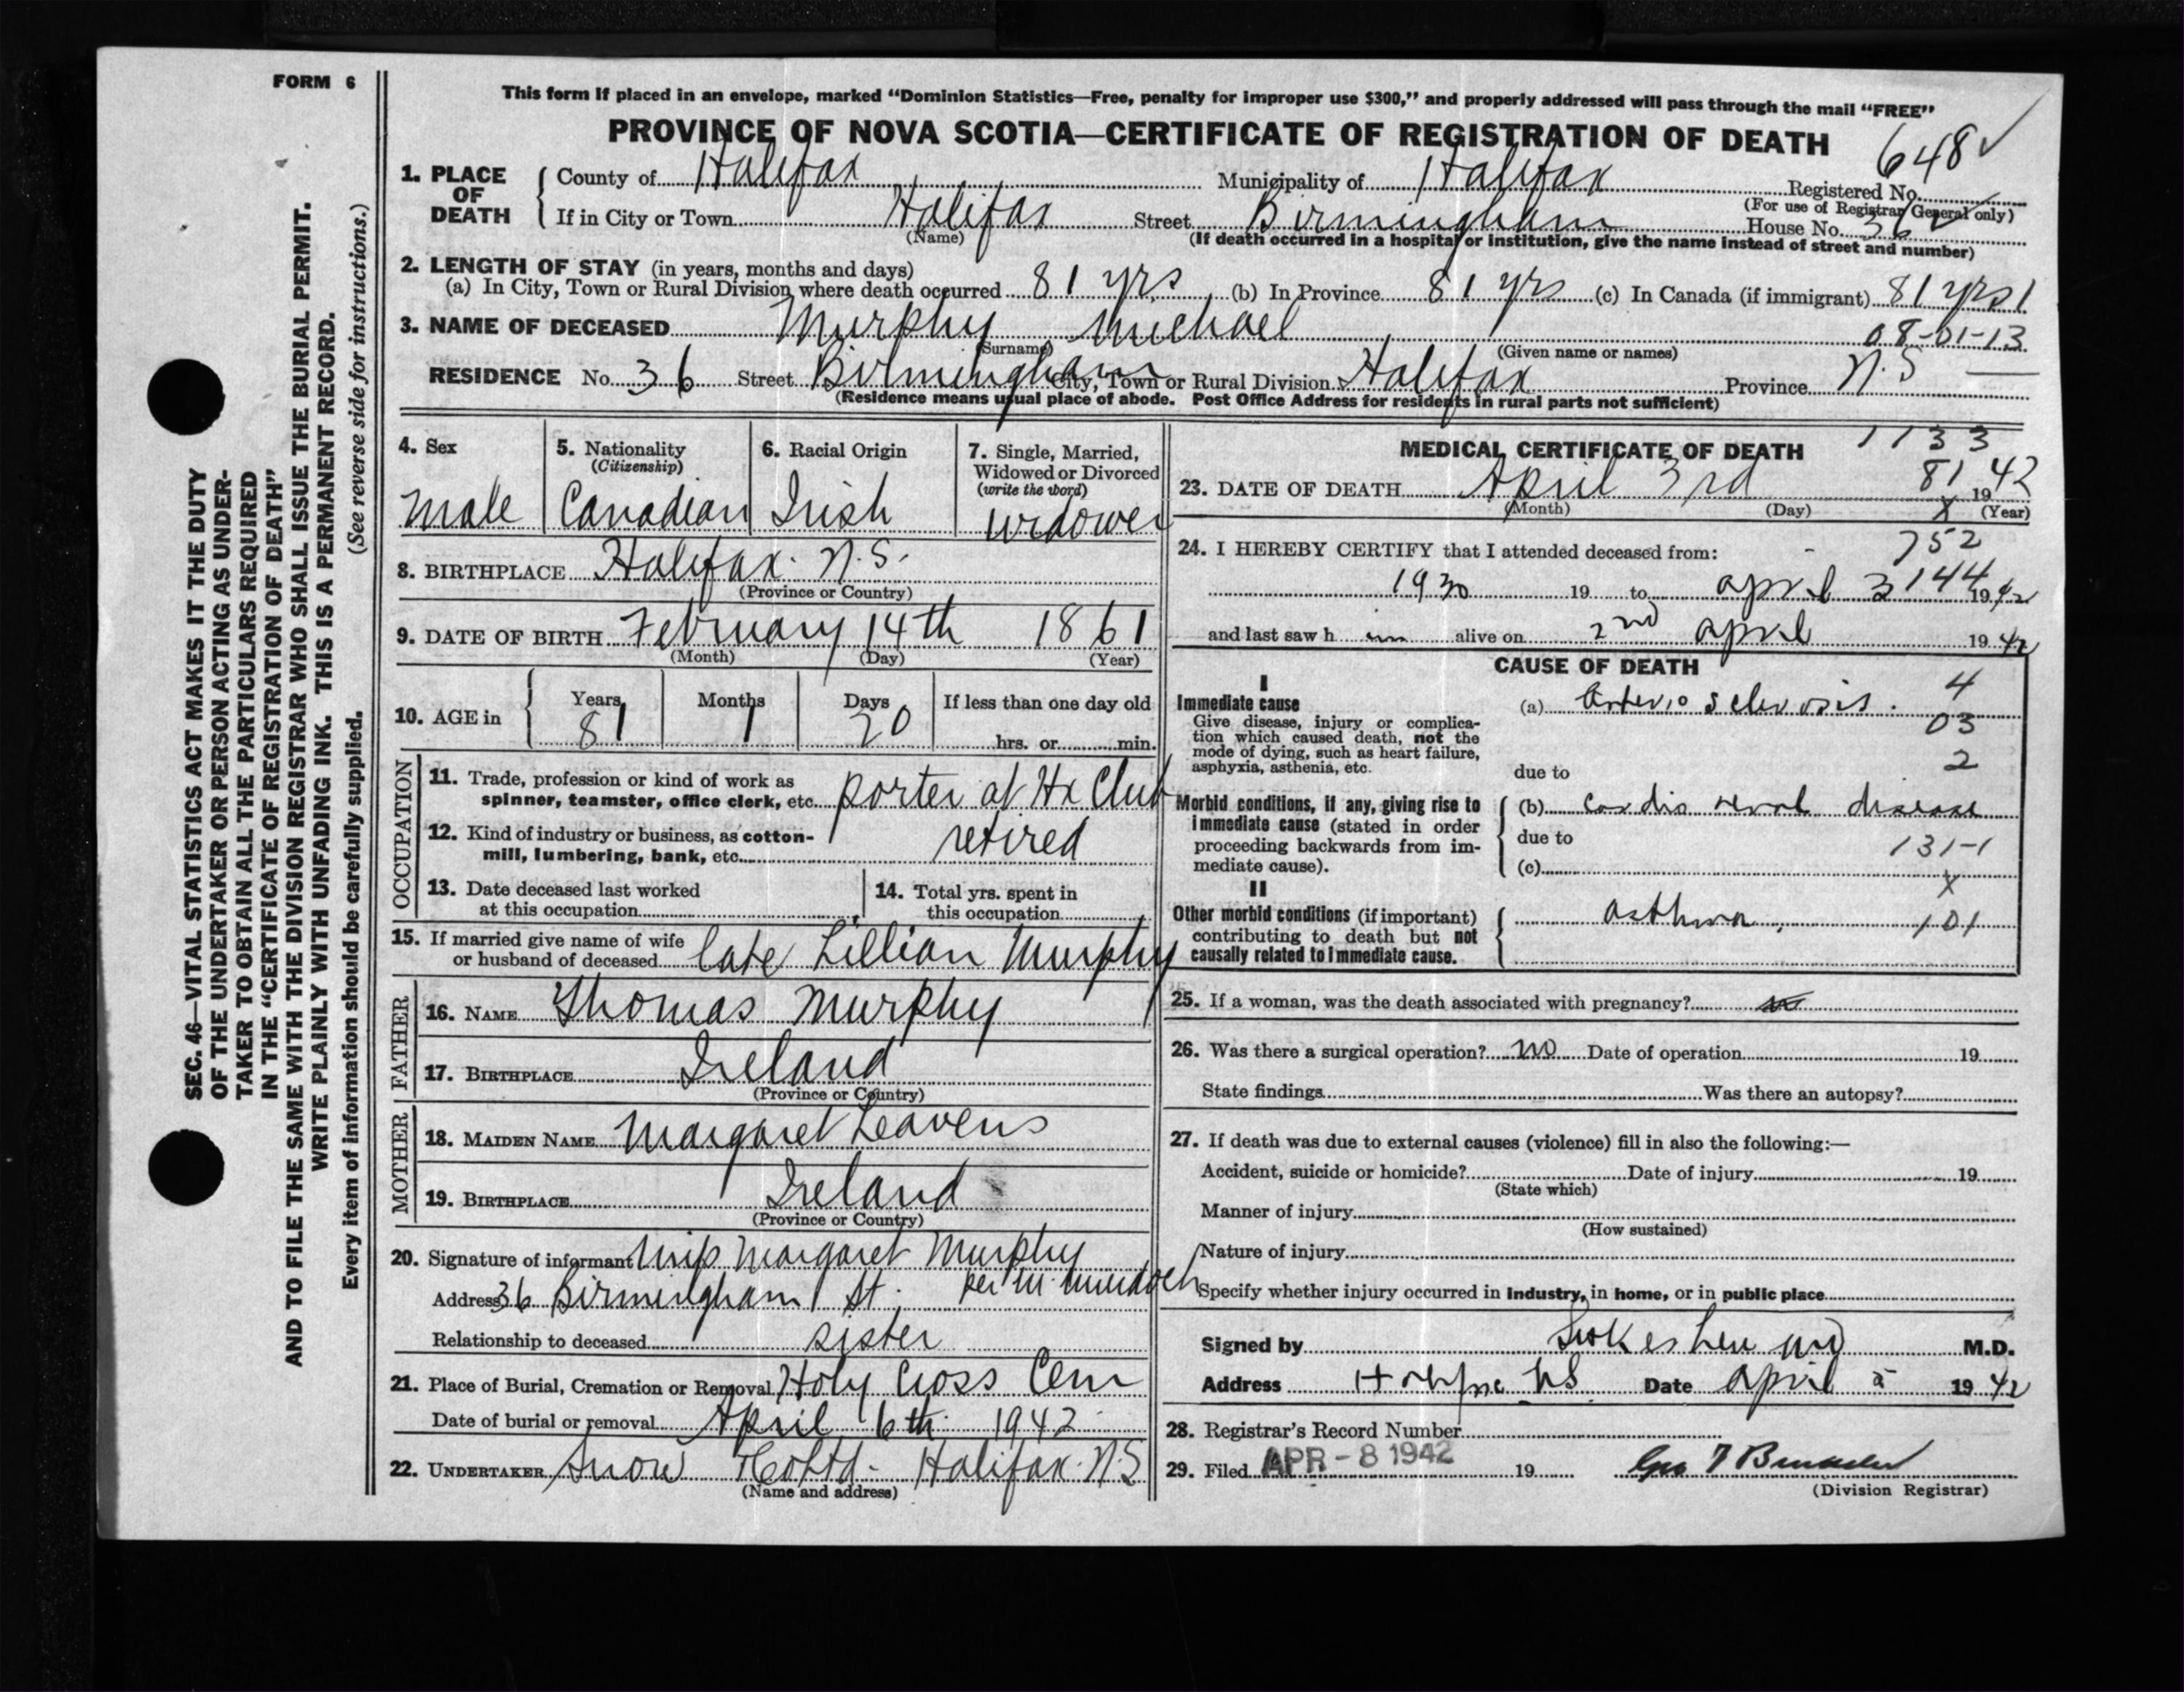 FORM 6
This form if placed in an envelope, marked "Dominion Statistics—Free, penalty for improper use $300," and properly addressed will pass through the mail "FREE"
PROVINCE OF NOVA SCOTIA—CERTIFICATE OF REGISTRATION OF DEATH
648 ✓
1. PLACE OF DEATH
County of Halifax Municipality of Halifax Registered No.
(For use of Registrar General only)
If in City or Town Halifax Street Birmingham House No. 36
(Name) (If death occurred in a hospital or institution, give the name instead of street and number)
2. LENGTH OF STAY (in years, months and days)
(a) In City, Town or Rural Division where death occurred 81 yrs (b) In Province 81 yrs (c) In Canada (if immigrant) 81 yrs 1
3. NAME OF DECEASED Murphy Michael 08-01-13
(Surname) (Given name or names)
RESIDENCE No. 36 Street Birmingham City, Town or Rural Division Halifax Province N.S
(Residence means usual place of abode. Post Office Address for residents in rural parts not sufficient)
4. Sex
Male
5. Nationality
(Citizenship)
Canadian
6. Racial Origin
Irish
7. Single, Married,
Widowed or Divorced
(write the word)
widower
8. BIRTHPLACE Halifax. N.S.
(Province or Country)
9. DATE OF BIRTH February 14th 1861
(Month) (Day) (Year)
10. AGE in
Years Months Days If less than one day old
81 1 20 hrs. or min.
OCCUPATION
11. Trade, profession or kind of work as
spinner, teamster, office clerk, etc. porter at Hx Club
12. Kind of industry or business, as cotton-
mill, lumbering, bank, etc. retired
13. Date deceased last worked
at this occupation
14. Total yrs. spent in
this occupation
15. If married give name of wife
or husband of deceased late Lillian Murphy
FATHER
16. NAME Thomas Murphy
17. BIRTHPLACE Ireland
(Province or Country)
MOTHER
18. MAIDEN NAME Margaret Leavens
19. BIRTHPLACE Ireland
(Province or Country)
20. Signature of informant Miss Margaret Murphy
per M. Murdoch
Address 36 Birmingham St.
Relationship to deceased sister
21. Place of Burial, Cremation or Removal Holy Cross Cem
Date of burial or removal April 6th 1942
22. UNDERTAKER Snow & Co Ltd - Halifax. N.S
(Name and address)
MEDICAL CERTIFICATE OF DEATH
1133
81
23. DATE OF DEATH April 3rd 1942
(Month) (Day) (Year)
X
24. I HEREBY CERTIFY that I attended deceased from:
752
144
1930 19 to April 3 1942
and last saw him alive on 2nd April 1942
CAUSE OF DEATH
I
Immediate cause
Give disease, injury or complica-
tion which caused death, not the
mode of dying, such as heart failure,
asphyxia, asthenia, etc.
(a) Arterio sclerosis.
4
03
2
due to
Morbid conditions, if any, giving rise to
immediate cause (stated in order
proceeding backwards from im-
mediate cause).
(b) Cardio renal disease
due to
131-1
(c)
X
II
Other morbid conditions (if important)
contributing to death but not
causally related to immediate cause.
asthma 101
25. If a woman, was the death associated with pregnancy?
26. Was there a surgical operation? no Date of operation 19
State findings Was there an autopsy?
27. If death was due to external causes (violence) fill in also the following:—
Accident, suicide or homicide? Date of injury 19
(State which)
Manner of injury
(How sustained)
Nature of injury
Specify whether injury occurred in industry, in home, or in public place
Signed by M.D.
Address Halifax NS Date April 5 1942
28. Registrar's Record Number
29. Filed APR - 8 1942 19
(Division Registrar)
SEC. 46—VITAL STATISTICS ACT MAKES IT THE DUTY
OF THE UNDERTAKER OR PERSON ACTING AS UNDER-
TAKER TO OBTAIN ALL THE PARTICULARS REQUIRED
IN THE "CERTIFICATE OF REGISTRATION OF DEATH"
AND TO FILE THE SAME WITH THE DIVISION REGISTRAR WHO SHALL ISSUE THE BURIAL PERMIT.
WRITE PLAINLY WITH UNFADING INK. THIS IS A PERMANENT RECORD.
Every item of information should be carefully supplied. (See reverse side for instructions.)